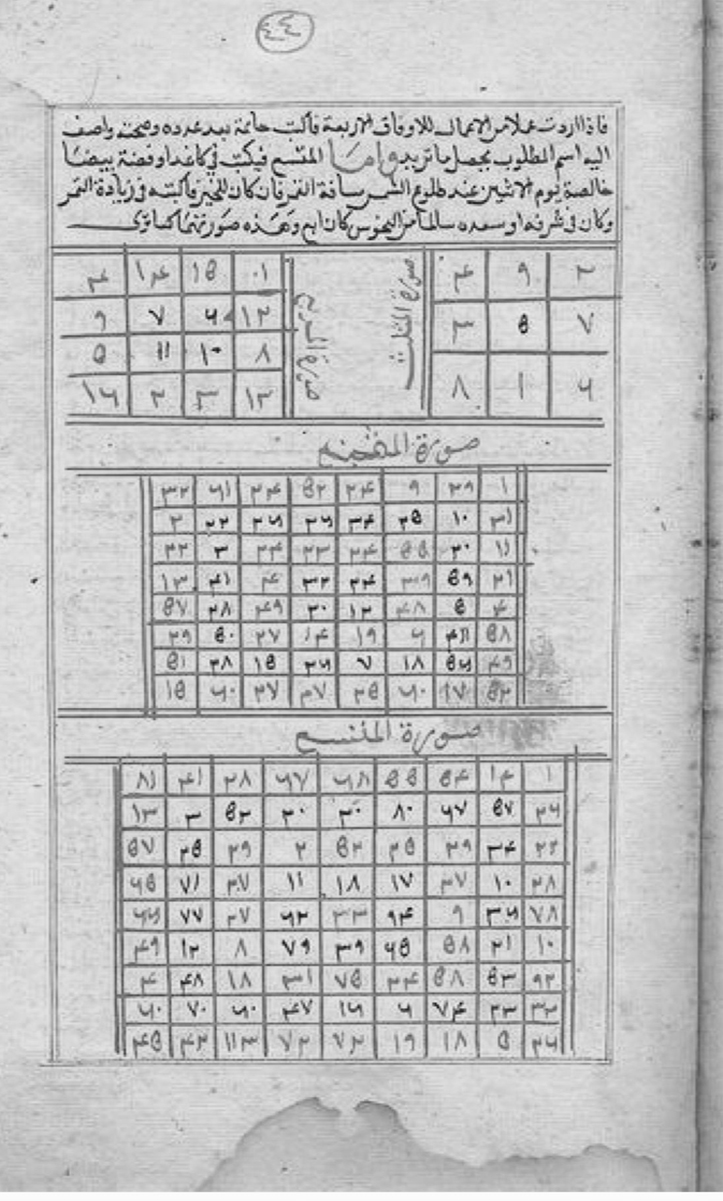 ٤٤
فاذا اردت عملا من الاعمال للاوفاق الاربعة فاكتب خاتمة بعد عدده وصحته واضف
اليه اسم المطلوب يحصل ما تريد واما المتسع فيكتب في كاغد او فضة بيضا
خالصة يوم الاثنين عند طلوع الشمس ساعة القمر فان كان للخير فاكتبه في زيادة القمر
وكان في شرفه او سعده سالما من النحوس كان اتم وهذه صورتهما كما ترى
صورة المثلث
٢ ٩ ٤
٧ ٥ ٣
٦ ١ ٨
صورة المربع
١ ١٥ ١٤ ٤
١٢ ٦ ٧ ٩
٨ ١٠ ١١ ٥
١٣ ٣ ٢ ١٦
صورة
١ ٢٩ ٩ ٢٤ ٥٢ ٢٤ ٦١ ٣٢
٣١ ١٠ ٣٥ ٣٤ ٢٦ ٢٦ ٢٢ ٢
١١ ٣٠ ٥٥ ٢٤ ٢٣ ٢٤ ٣ ٢٢
٢١ ٥٩ ٣٩ ٢٤ ٣٢ ٤ ٤١ ١٣
٤ ٥ ٤٨ ١٢ ٢٠ ٤٩ ٢٨ ٥٧
٥٨ ٤٦ ٦ ١٩ ١٤ ٢٧ ٥٠ ٢٩
٤٩ ٥٦ ١٨ ٧ ٢٦ ١٥ ٣٨ ٥١
٥٢ ١٧ ٦٠ ٣٥ ٣٧ ٢٧ ٦٠ ١٥
صورة المتسع
١ ١٤ ٥٤ ٥٥ ٦٨ ٦٧ ٢٨ ٤١ ٨١
٢٦ ٥٧ ٦٧ ٨٠ ٣٠ ٢٠ ٥٢ ٣ ١٣
٢٢ ٣٤ ٢٩ ٣٥ ٥٢ ٢ ٢٩ ٢٥ ٥٧
٢٨ ١٠ ٣٧ ١٧ ١٨ ١١ ٢٧ ٧١ ٦٥
٧٨ ٣٦ ٩ ٩٤ ٣٣ ٦٢ ٢٧ ٧٧ ٦٦
١٠ ٢١ ٥٨ ٦٥ ٣٩ ٧٩ ٨ ١٢ ٤٩
٩٢ ٥٣ ٥٨ ٢٤ ٧٥ ٣١ ١٨ ٤٨ ٤
٣٢ ٢٣ ٧٤ ٦ ١٦ ٤٧ ٦٠ ٧٠ ٦٠
٢٦ ٥ ١٨ ١٩ ٧٢ ٧٢ ١١٣ ٤٢ ٤٥